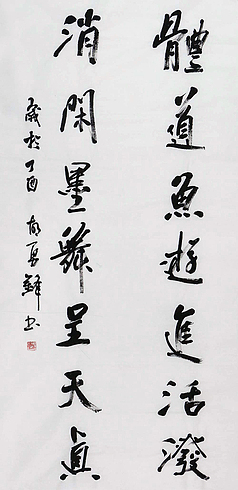 體道魚遊進活潑
消閑墨舞呈天真
歲於丁酉 書